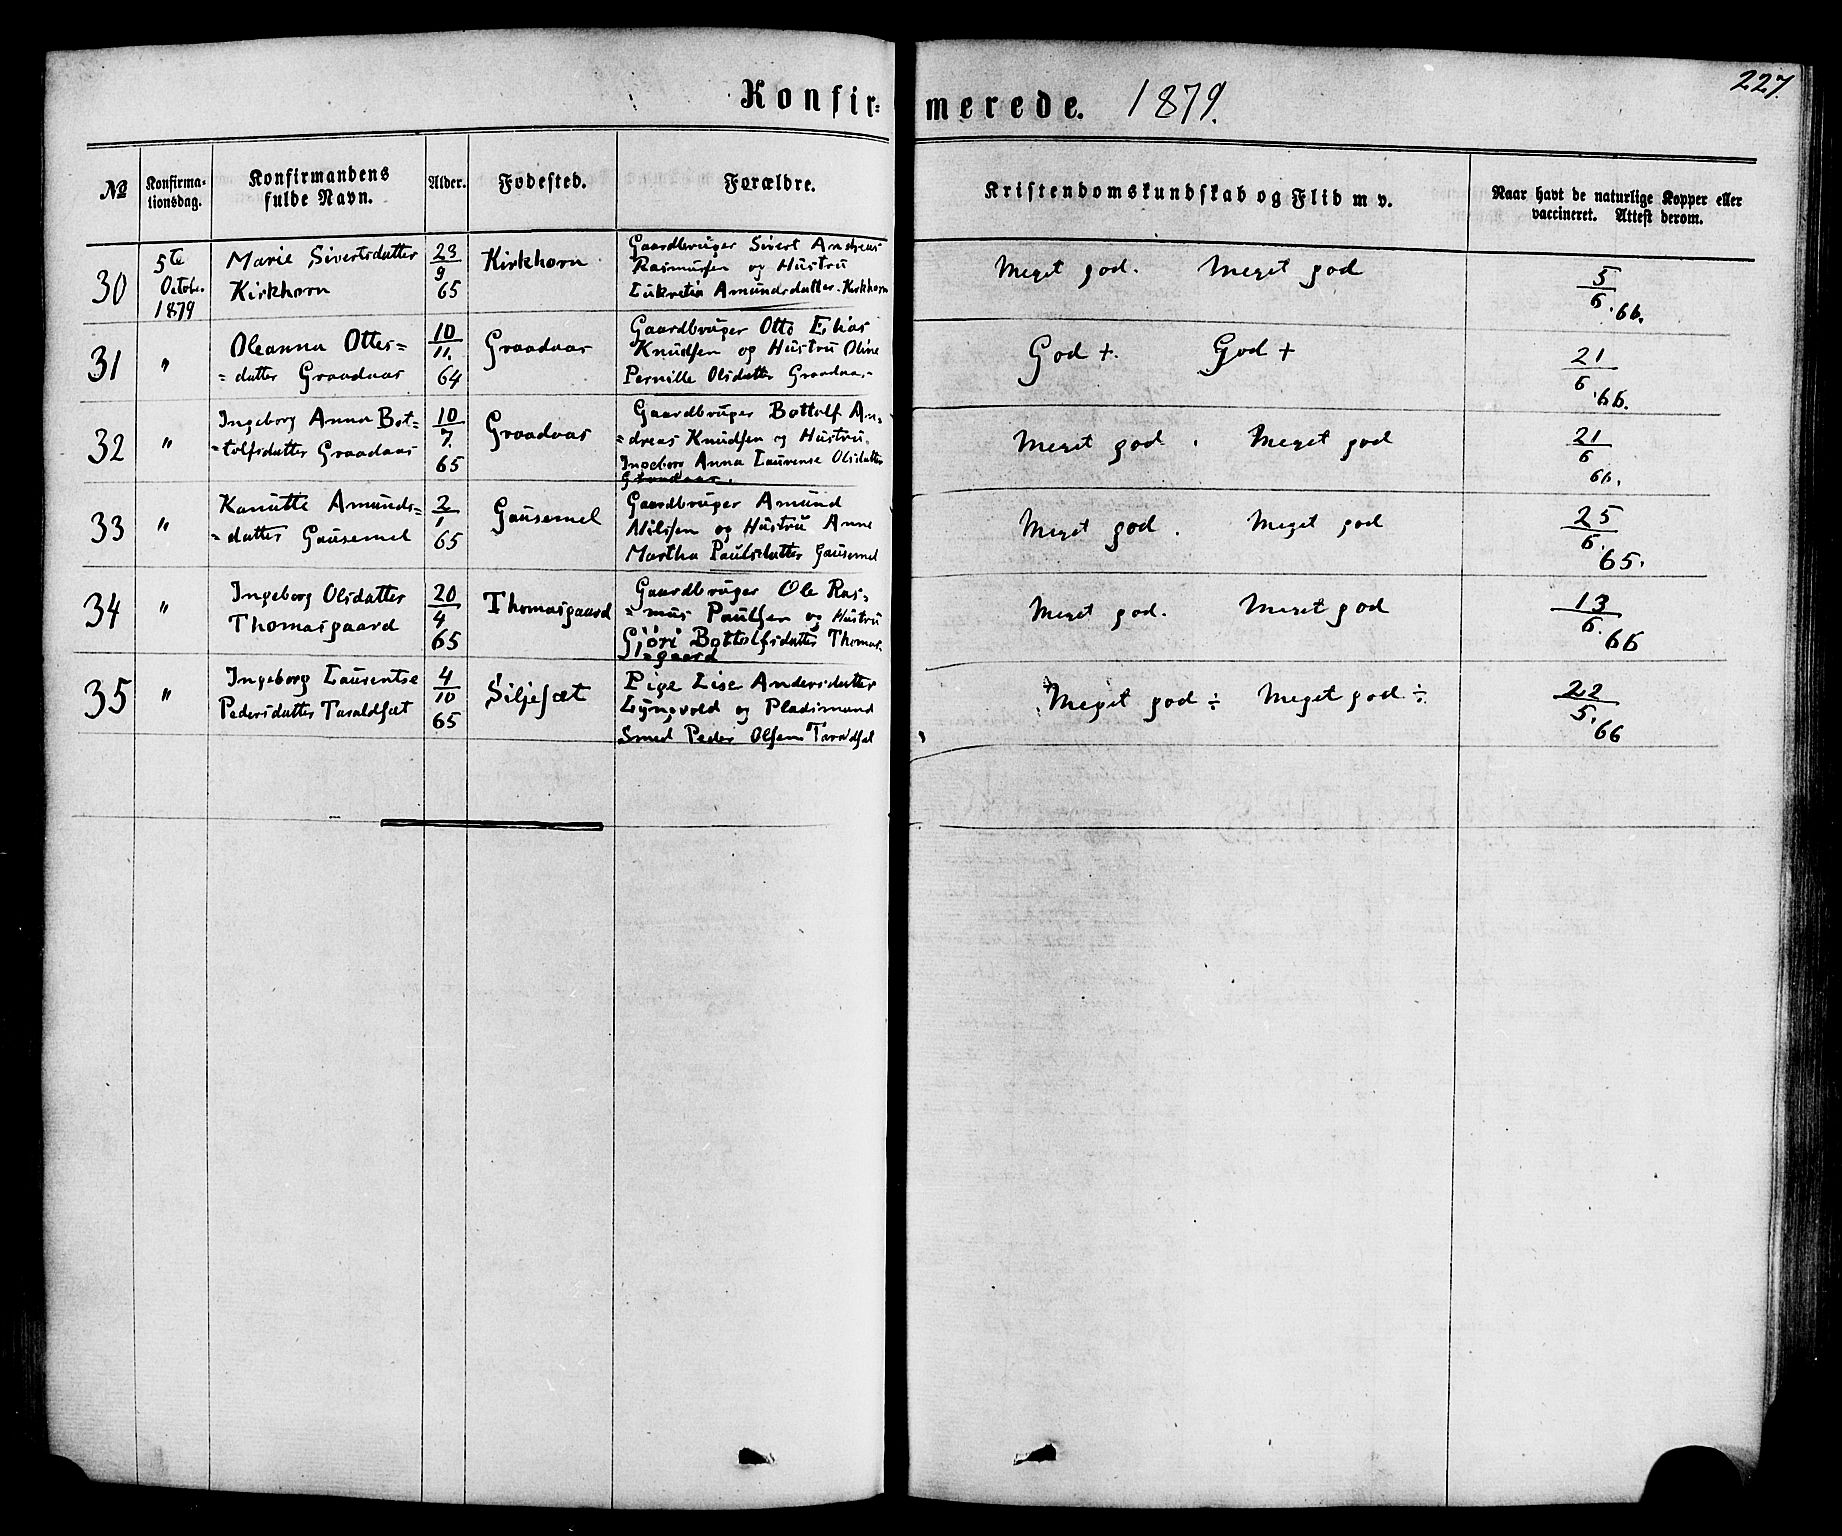 227.
Konfir= merede. 1879.
No Konfirma-tionsdag. Konfirmandens fulde Navn. Alder. Fødested. Forældre. Kristendomskundskab og Flid m v. Naar havt de naturlige Kopper eller vaccineret. Attest derom.
30
5te
Octobr.
1879
Marie Sivertsdatter
Kirkhorn
23
9
65
Kirkhorn
Gaardbruger Sivert Andreas
Rasmussen og Hustru
Lukretia Amundsdatter Kirkhorn
Meget god. Meget god
5
6.66.
31
"
Oleanna Ottes=
=datter Graadaas
10
11.
64
Graadaas
Gaardbruger Otto Elias
Knudsen og Hustru Oline
Pernille Olsdatter Graadaas
God +. God +
21
6.66.
32
"
Ingeborg Anna Bot=
=tolfsdatter Graadaas
10
7.
65
Graadaas
Gaardbruger Bottolf An=
=dreas Knudsen og Hustru
Ingeborg Anna Laurense Olsdatter
Graadaas.
Meget god. Meget god
21
6
66.
33
"
Kanutte Amunds=
=datter Gausemel
2
1
65
Gausemel
Gaardbruger Amund
Nilssen og Hustru Anne
Martha Paulsdatter Gausemel
Meget god. Meget god
25
6.
65.
34
"
Ingeborg Olsdatter
Thomasgaard
20
4
65
Thomasgaard
Gaardbruger Ole Ras=
=mus Paulsen og Hustru
Gjøri Bottolfsdatter Thomas=
=gaard
Meget god. Meget god
13
6.
66
35
"
Ingeborg Laurentse
Pedersdatter Taraldsæt
4
10
65
Siljesæt
Pige Lise Andersdatter
Lyngvold og Pladsmand
Smed Peder Olsen Taraldsæt
Meget god ÷ Meget god ÷
22
5.
66